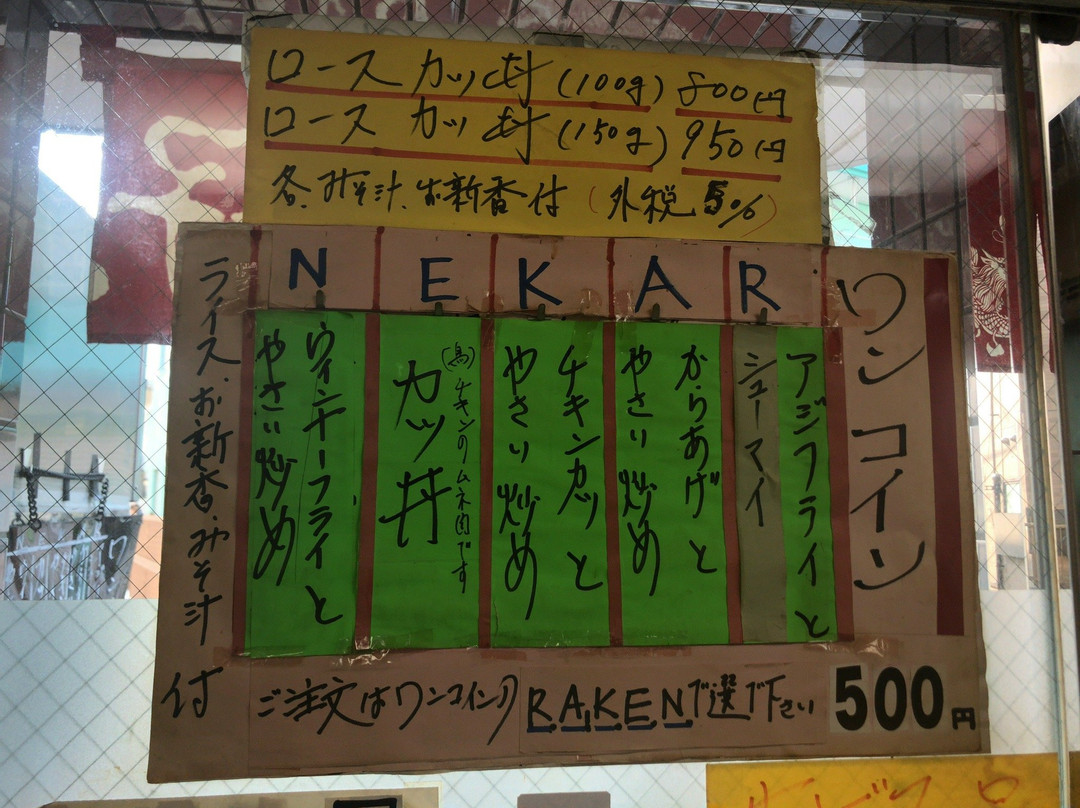 ロースカツ丼(100g) 800円
ロースカツ丼(150g) 950円
各、みそ汁、お新香付 (外税 5%)
ワンコイン
R
アジフライと
シューマイ
A
からあげと
やさい炒め
K
チキンカツと
やさい炒め
E
(鳥)チキンのムネ肉です
カツ丼
N
ウインナーフライと
やさい炒め
ライス、お新香、みそ汁付
ご注文はワンコインのR.A.K.E.Nで選で下さい
500円